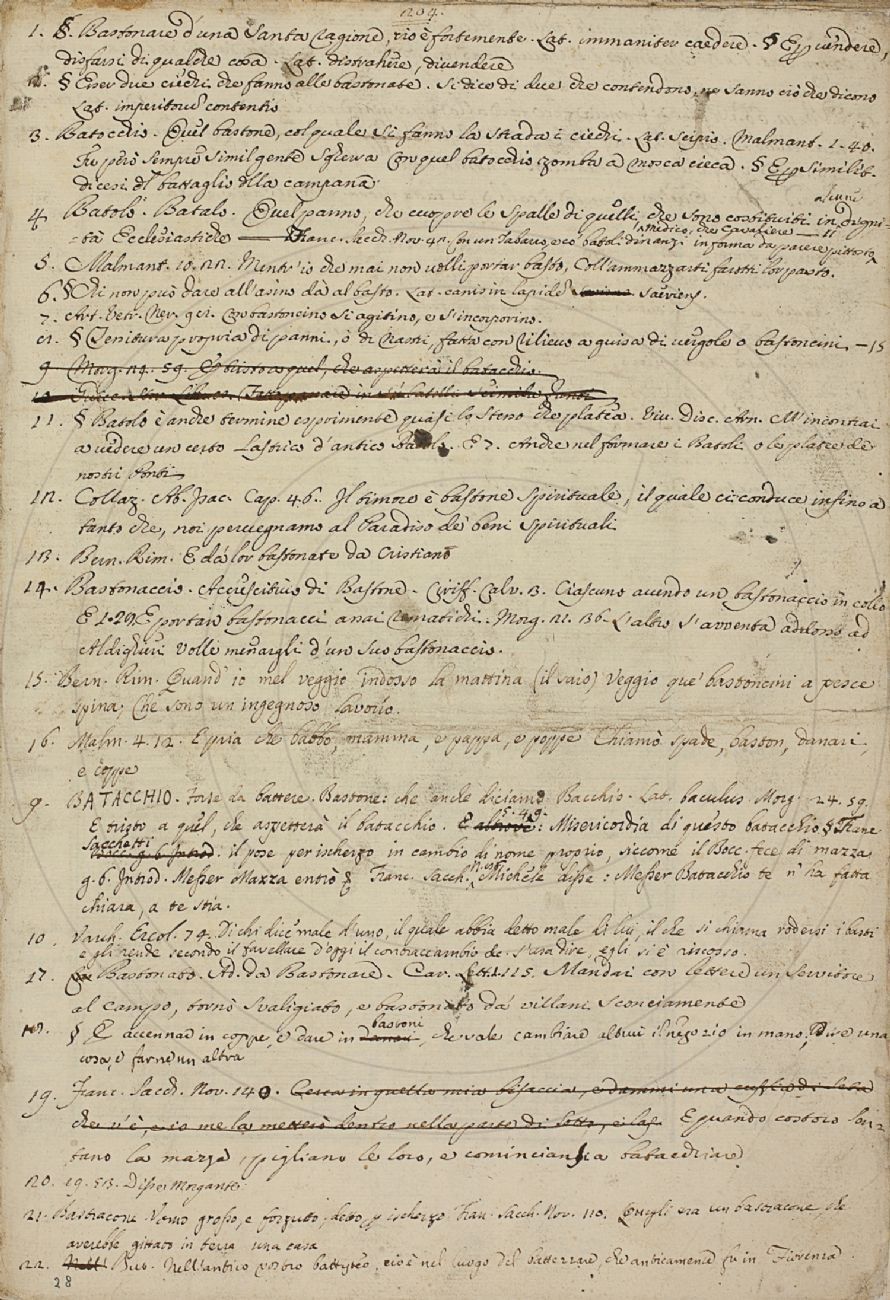 204.
1. §. Bastonare d'una Santa ragione, cioè fortemente. Lat. immaniter caedere. § E p vendere,
disfarsi di qualche cosa. Lat. distrahere, divendere
2. § Esser due ciechi che fanno alle bastonate. Si dice di due che contendono, ne sanno ciò che dicono
Lat. imperitorum contentio
3. Batocchio. Quel bastone, col quale si fanno la strada i ciechi. Lat. Scipio. Malmant. 1. 40.
Che però sempre simil gente scherza Con quel batocchio zomba a mosca cieca. § E p similit.
dicesi il battaglio della campana
alcune
4 Batolo. Batalo. Quel panno, che cuopre le spalle di quelli, che sono costituiti in digni-
Medico, che Cavaliere
tà Ecclesiastiche Franc. Sacch. Nov. 42. con un tabarro, e co' batoli dinanzi in forma da parere piuttosto
5. Malmant. 10. 22. Mentr' io che mai non volli portar basto, Coll'ammazzarti farotti lor pasto.
6. § Chi non può dare all'asino dà al basto. Lat. canis in lapidem saeviens.
7. Art. Vetr. Ner. 92. Con bastoncino si agitino, e s'incorporino.
8. § Tenitura propria di panni, ò di nastri, fatta con rilievo a guisa di vergole o bastoncini — 15
9 Morg. 24. 59. E tristo a quel, che aspetterà il batacchio.
11. § Batolo è anche termine esprimente quasi lo stesso che platea. Viv. Disc. Arn. M'incontrai
a vedere un certo Lastrico d'antico Batolo. E 7. Anche nel formare i Batoli o le platee de'
nostri Ponti
12. Collaz. Ab. Isac. Cap. 46. Il timore è bastone spirituale, il quale ci conduce infino a
tanto che, noi pervegnamo al Paradiso de' beni Spirituali
13. Bern. Rim. E dà lor bastonate da Cristiano
14. Bastonaccio. Accrescitivo di Bastone. Ciriff. Calv. 3. Ciascuno avendo un bastonaccio in collo
E 1. 29. E portar bastonacci assai tematichi. Morg. 21. 36. L'altro s'avventa addosso ad
Aldighieri Volle menargli d'un suo bastonaccio.
15. Bern. Rim. Quand' io mel veggio indosso la mattina (il saio) Veggio que' bastoncini a pesce
spina, Che sono un ingegnoso lavorio.
16. Malm. 4. 12. E pria che babbo, mamma, e pappa, e poppe Chiamò spade, baston, danari,
e coppe
9. BATACCHIO. Forse da battere. Bastone: che anche diciamo Bacchio. Lat. baculus. Morg. 24. 59.
E tristo a quel, che aspetterà il batacchio. E altrove: Misericordia di questo batacchio § Franc.
Sacchetti
Bocc. g. 6 Introd: il pose per ischerzo in cambio di nome proprio, siccome il Bocc. fece di mazza
g. 6. Introd. Messer Mazza entrò & Franc. Sacch. Michele disse: Messer Batacchio te n' ha fatta
chiara, a te stia.
10. Varch. Ercol. 74. Di chi dice male d'uno, il quale abbia detto male di lui, il che si chiama rodersi i basti
e gli rende secondo il favellare d'oggi il contraccambio s'usa dire, egli si è riscosso.
17. Bastonato. Ad. da Bastonare. Car. Lett. 1. 115. Mandai con lettere un servitore
al campo, tornò svaligiato, e bastonato da' villani sconciamente
bastoni
18. § E accennar in coppe, e dare in danari, che vale cambiare altrui il negozio in mano, Dire una
cosa, e farne un altra
19. Franc. Sacch. Nov. 140. Cerca in quella mia bisaccia, e dammi una cuffia di seta
che v'è, e io me la metterò dentro nella parte di sotto, E quando costoro sen-
tano la mazza, pigliano le loro, e cominciansi a batacchiare
20. 19. 53. Disse Morgante:
21. Bastracone. Uomo grosso, e forzuto, detto p ischerzo. Fran. Sacch. Nov. 110. Quegli era un bastracone, che
averebbe gittato in terra una casa
22. Nell'antico vostro battisteo, cioè nel luogo del battezzare, che anticamente fu in Fiorenza
28